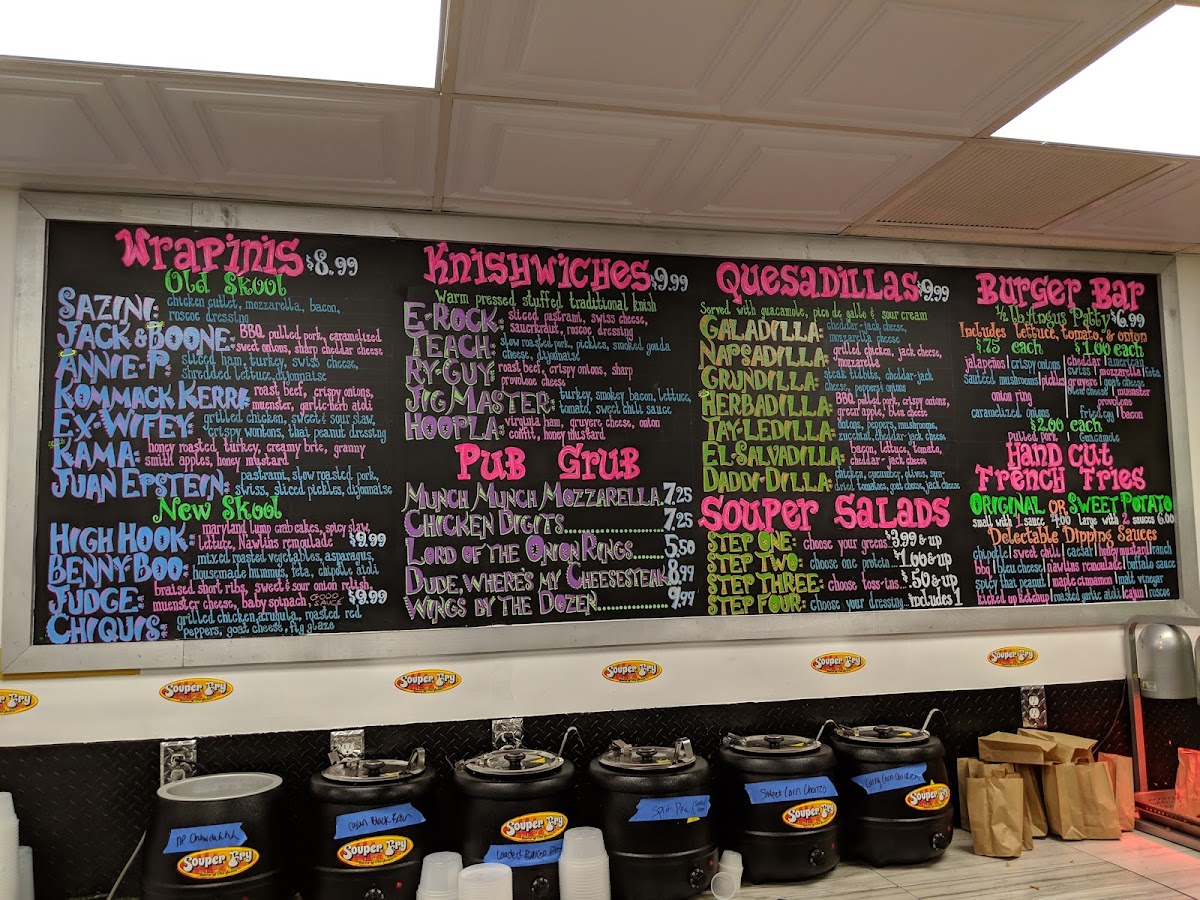 Wrapinis $8.99
Old Skool
Sazini: chicken cutlet, mozzarella, bacon,
roscoe dressing
Jack & Boone: BBQ pulled pork, caramelized
sweet onions, sharp cheddar cheese
Annie-P: sliced ham, turkey, swiss cheese,
shredded lettuce, dijonnaise
Kommack Kerri: roast beef, crispy onions,
muenster, garlic-herb aioli
Ex-Wifey: grilled chicken, sweet & sour slaw,
crispy wontons, thai peanut dressing
Rama: honey roasted turkey, creamy brie, granny
smith apples, honey mustard
Juan Epstein: pastrami, slow roasted pork,
swiss, sliced pickles, dijonnaise
New Skool
High Hook: maryland lump crab cakes, spicy slaw,
lettuce, Nawlins remoulade $9.99
Benny-Boo: mixed roasted vegetables, asparagus,
housemade hummus, feta, chipotle aioli
Judge: braised short ribs, sweet & sour onion relish,
muenster cheese, baby spinach, $9.99
Chiquis: grilled chicken, arugula, roasted red
peppers, goat cheese, fig glaze
Knishwiches $9.99
Warm pressed stuffed traditional knish
E-Rock: sliced pastrami, swiss cheese,
sauerkraut, roscoe dressing
Teach: slow roasted pork, pickles, smoked gouda
cheese, dijonnaise
Ry-Guy: roast beef, crispy onions, sharp
provolone cheese
Jig Master: turkey, smokey bacon, lettuce,
tomato, sweet chili sauce
Hoopla: virginia ham, gruyere cheese, onion
confit, honey mustard
Pub Grub
Munch Munch Mozzarella. 7.25
Chicken Digits............ 7.25
Lord of the Onion Rings...... 5.50
Dude, Where's my Cheesesteak 8.99
Wings by the Dozen............ 9.99
Quesadillas $9.99
Served with guacamole, pico de gallo & sour cream
Galadilla: cheddar-jack cheese,
mozzarella cheese
Napsadilla: grilled chicken, jack cheese,
mozzarella
Grundilla: steak tidbits, cheddar-jack
cheese, peppers & onions
Herbadilla: BBQ pulled pork, crispy onions,
green apple, bleu cheese
Tay-Ledilla: onions, peppers, mushrooms,
zucchini, cheddar-jack cheese
El-Salvadilla: bacon, lettuce, tomato,
cheddar-jack cheese
Daddi-Dilla: chicken, cucumber, olives, sun-
dried tomatoes, goat cheese, jack cheese
Souper Salads
Step One: choose your greens. $3.99 & up
Step Two: choose one protein... 1.00 & up
Step Three: choose toss-ins.. $.50 & up
Step Four: choose your dressing... includes 1
Burger Bar
½ lb Angus Patty $6.99
Includes lettuce, tomato, & onion
$.75 each
jalapeños | crispy onions
sauteed mushrooms | pickles
onion ring
caramelized onions
$1.00 each
cheddar | american
swiss | mozzarella | feta
gruyere | goat cheese
bleu cheese | muenster
provolone
fried egg | bacon
$2.00 each
pulled pork | Guacamole
Hand Cut
French Fries
Original or Sweet Potato
small with 1 sauce 4.00 large with 2 sauces 6.00
Delectable Dipping Sauces
chipotle | sweet chili | caesar | honey mustard | ranch
bbq | bleu cheese | nawlins remoulade | buffalo sauce
spicy thai peanut | maple cinnamon | malt vinegar
kicked up ketchup | roasted garlic aioli | cajun | roscoe
Souper Fry
Souper Fry
Souper Fry
Souper Fry
Souper Fry
Souper Fry
Souper Fry
Souper Fry
Souper Fry
Loaded Baked
Split Pea
Sweet Corn Chorizo
Souper Fry
Curry Corn Chicken
Souper Fry